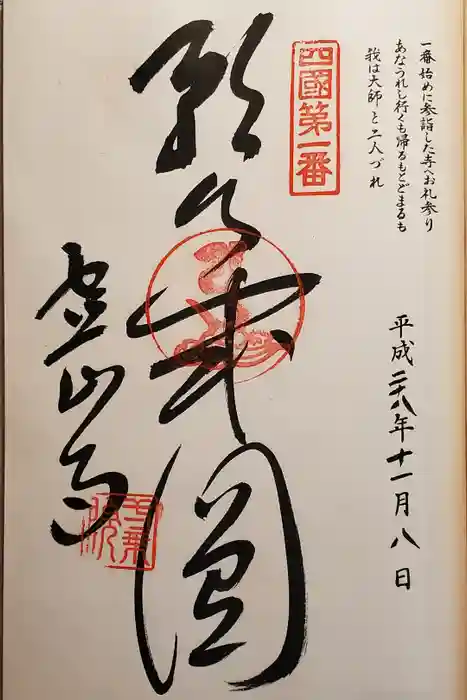 一番始めに参詣した寺へお礼参り
あなうれし行くも帰るもとどまるも
我は大師と二人づれ
平成二十八年十一月八日
四國第一番
霊山寺
一乗院